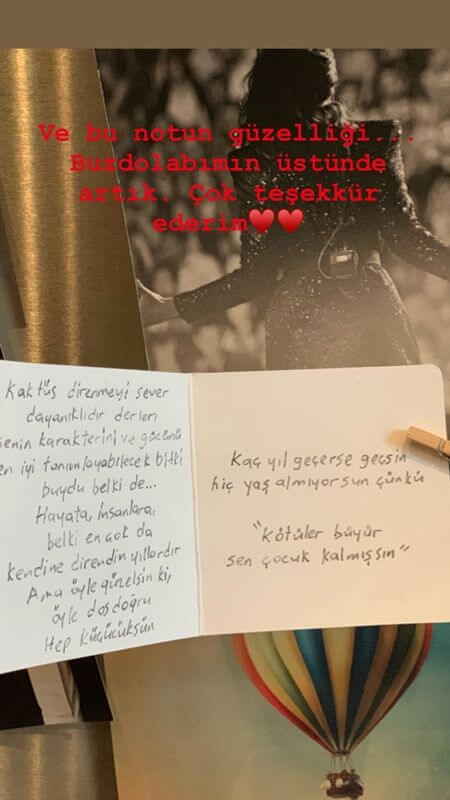 Ve bu notun güzelliği...
Buzdolabımın üstünde
artık. Çok teşekkür
ederim♥️♥️
Kaktüs direnmeyi sever
dayanıklıdır derler
senin karakterini ve gücünü
en iyi tanımlayabilecek bitki
buydu belki de...
Hayata, insanlara,
belki en çok da
kendine direndin yıllardır
Ama öyle güzelsin ki,
öyle dosdoğru
Hep küçücüksün
Kaç yıl geçerse geçsin
hiç yaş almıyorsun çünkü
"kötüler büyür
sen çocuk kalmışsın"